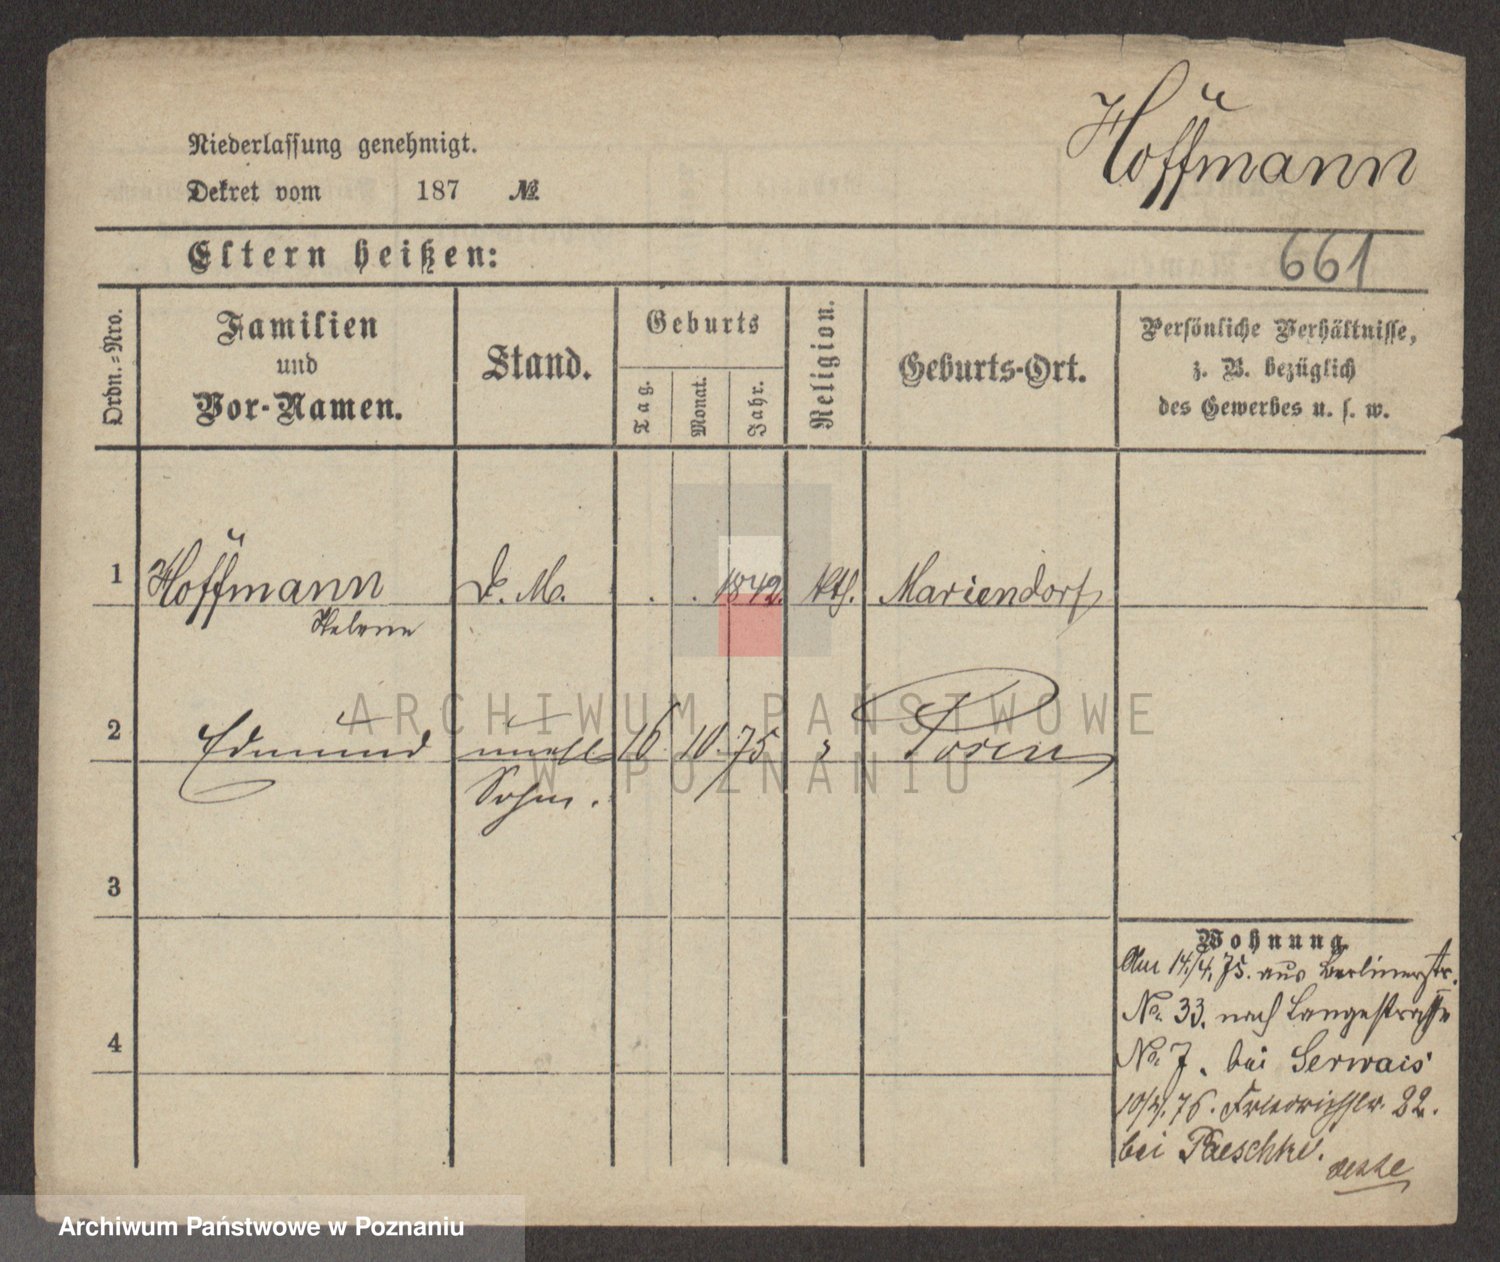 Hoffmann
Niederlassung genehmigt.
Dekret vom 187 №
Eltern heißen:
661
Ordn.-Nro.
Familien
und
Vor-Namen.
Stand.
Geburts
Tag.
Monat.
Jahr.
Religion.
Geburts-Ort.
Persönliche Verhältnisse,
z. B. bezüglich
des Gewerbes u. s. w.
1 Hoffmann D. M. . . 1842. kth. Mariendorf
Helene
2 Edmund unehl 16. 10. 75 Posen
Sohn.
3
4
Wohnung
Am 14./4. 75. aus Berlinerstr.
No. 33. nach Langestrasse
No. 7. bei Serwais
10/4. 76. Friedrichstr. 22.
bei Paeschke.
ARCHIWUM PAŃSTWOWE
W POZNANIU
Archiwum Państwowe w Poznaniu